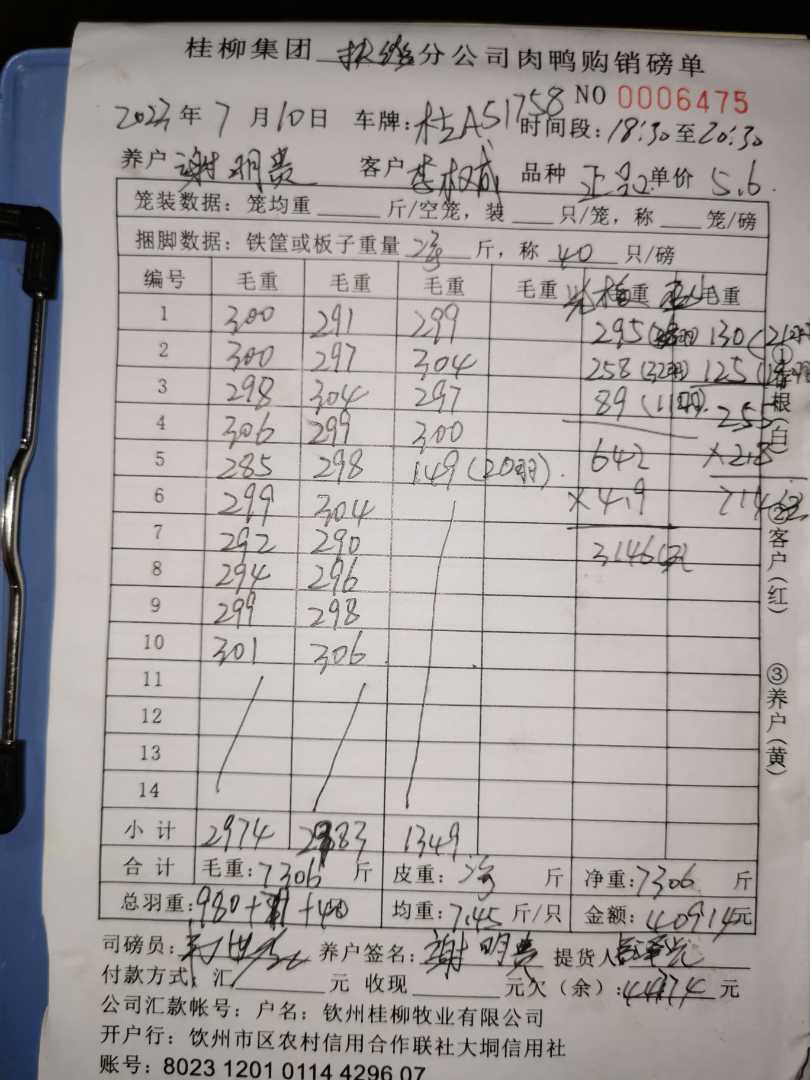 桂柳集团 分公司肉鸭购销磅单
NO 0006475
2023年7月10日 车牌:桂A51758 时间段:18:30至20:30
养户 谢明贵 客户 李权成 品种 正品 单价 5.6
笼装数据:笼均重 斤/空笼,装 只/笼,称 笼/磅
捆脚数据:铁筐或板子重量 净 斤,称 40 只/磅
编号 毛重 毛重 毛重 毛重 毛重 毛重
1 300 291 299 295 130
2 300 297 304 258(32羽) 125
3 298 304 297 89(11羽) 255
4 306 299 300
5 285 298 149(20羽) 642 ×2.8
6 299 304 ×4.9 714元
7 292 290 3146元
8 294 296
9 299 298
10 301 306
11
12
13
14
小计 2974 2983 1349
合计 毛重:7306 斤 皮重:净 斤 净重:7306 斤
总羽重:980+ +40 均重:7.45斤/只 金额:40914元
司磅员: 养户签名:谢明贵 提货人
付款方式:汇 元 收现 元欠(余):44774元
公司汇款帐号:户名:钦州桂柳牧业有限公司
开户行:钦州市区农村信用合作联社大垌信用社
账号:8023 1201 0114 4296 07
①存根(白)
②客户(红)
③养户(黄)